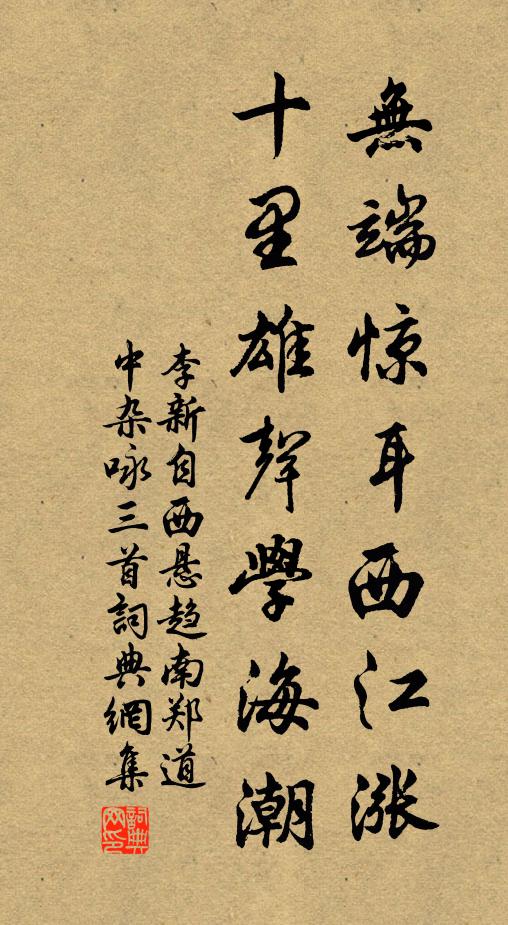 無端惊耳西江涨
十里雄聲學海潮
李新自西悬趋南郑道
中杂咏三首詞典網集
詞典网印